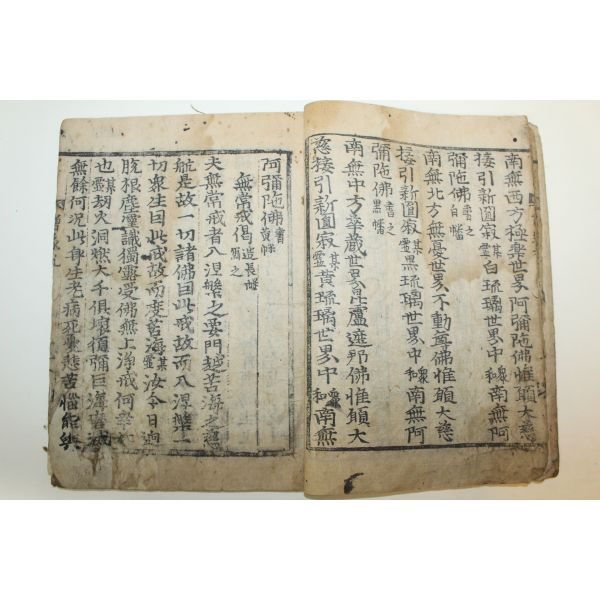 南無西方極樂世界阿彌陁佛惟願大慈
接引新圓寂某靈白琉璃世界中和衆南無阿
彌陁佛書之白幡
南無北方無憂世界不動尊佛惟願大慈
接引新圓寂某靈黑琉璃世界中和衆南無阿
彌陁佛書之黑幡
南無中方華藏世界毘盧遮那佛惟願大
慈接引新圓寂某靈黃琉璃世界中和衆南無
阿彌陁佛書黃幡
無常戒偈造長幡書之
夫無常戒者入涅槃之要門越苦海之慈
航是故一切諸佛因此戒故而入涅槃一
切衆生因此戒故而度苦海某靈汝今日逈
脫根塵靈識獨露受佛無上淨戒何幸
也某靈劫火洞燃大千俱壞須彌巨海磨滅
無餘何況此身生老病死憂悲苦惱能與